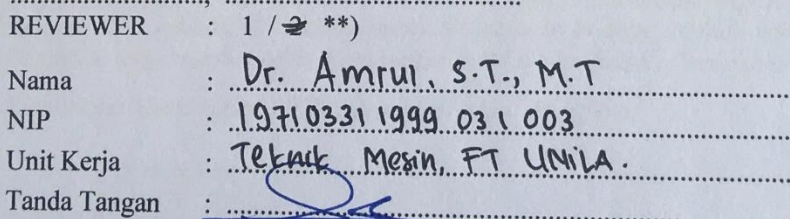 REVIEWER : 1 / 2 **)
Nama : Dr. Amrul, S.T., M.T
NIP : 19710331 1999 03 1 003
Unit Kerja : Teknik Mesin, FT UNILA.
Tanda Tangan :